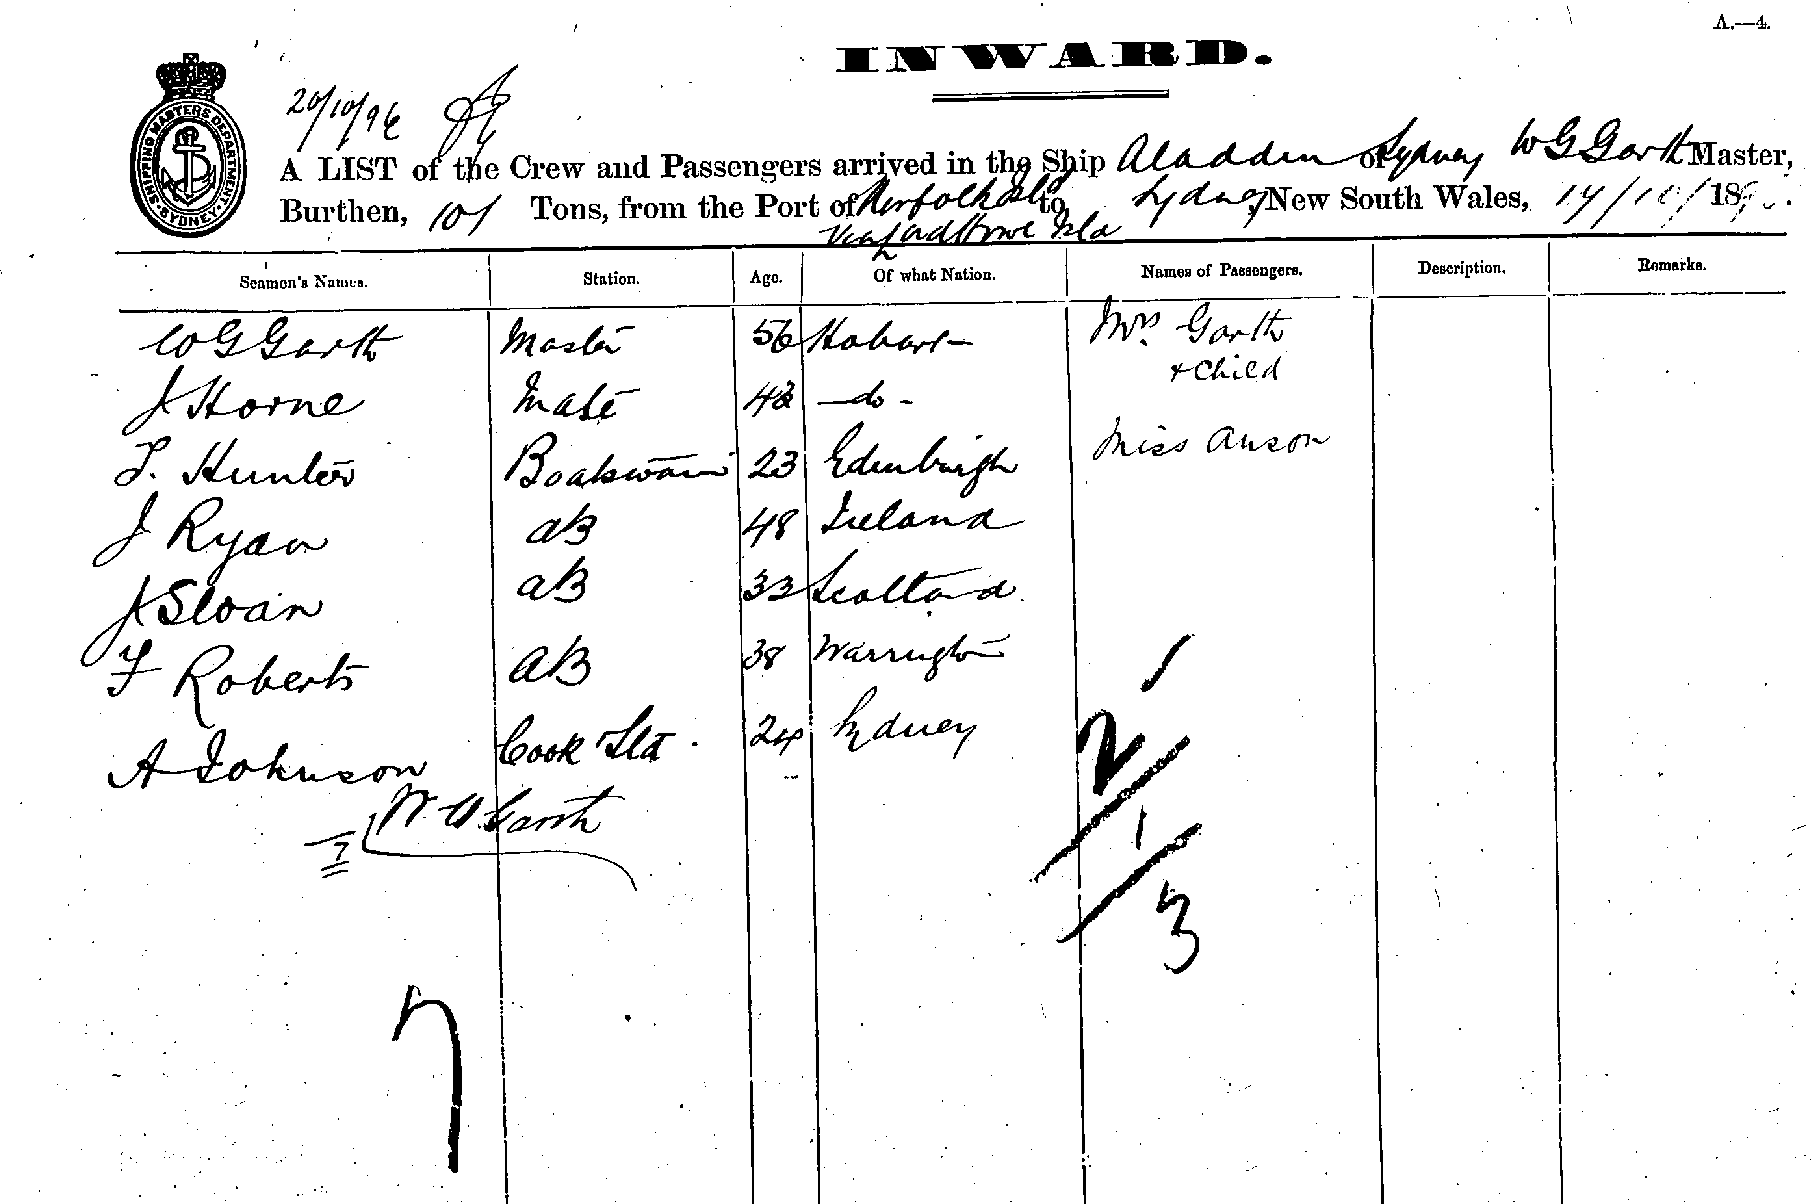 A.—4.
INWARD.
20/10/96
SHIPPING MASTERS DEPARTMENT
SYDNEY
A LIST of the Crew and Passengers arrived in the Ship Aladdin of Sydney W G Garth Master,
Burthen, 101 Tons, from the Port of Norfolk Isld to Sydney, New South Wales, 18
via Lord Howe Isld
Seamen's Names. Station. Age. Of what Nation. Names of Passengers. Description. Remarks.
W G Garth Master 56 Hobart Mrs Garth
& Child
J Horne Mate 43 -do-
Miss Anson
T. Hunter Boatswain 23 Edinburgh
J Ryan aB 48 Ireland
J Sloan aB 33 Scotland
F Roberts aB 38 Warrington
A Johnson Cook & Std 24 Sydney
W. G. Garth
7
1
2
1
3
7